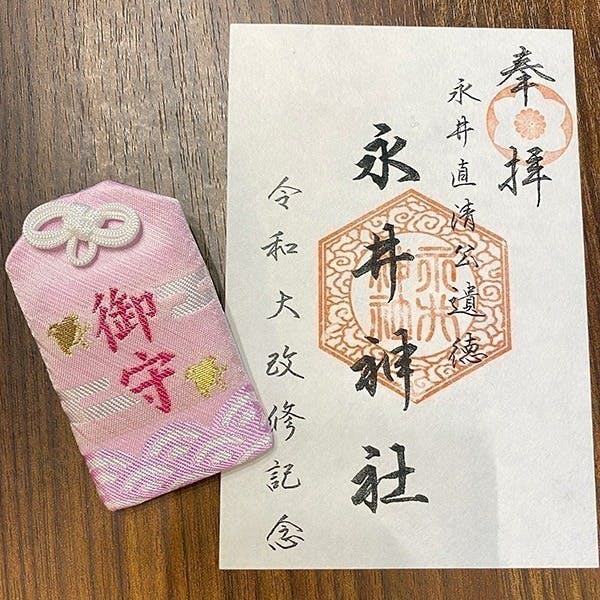 奉拝
永井直清公遺徳
永井神社
令和大改修記念
永井神社
御守